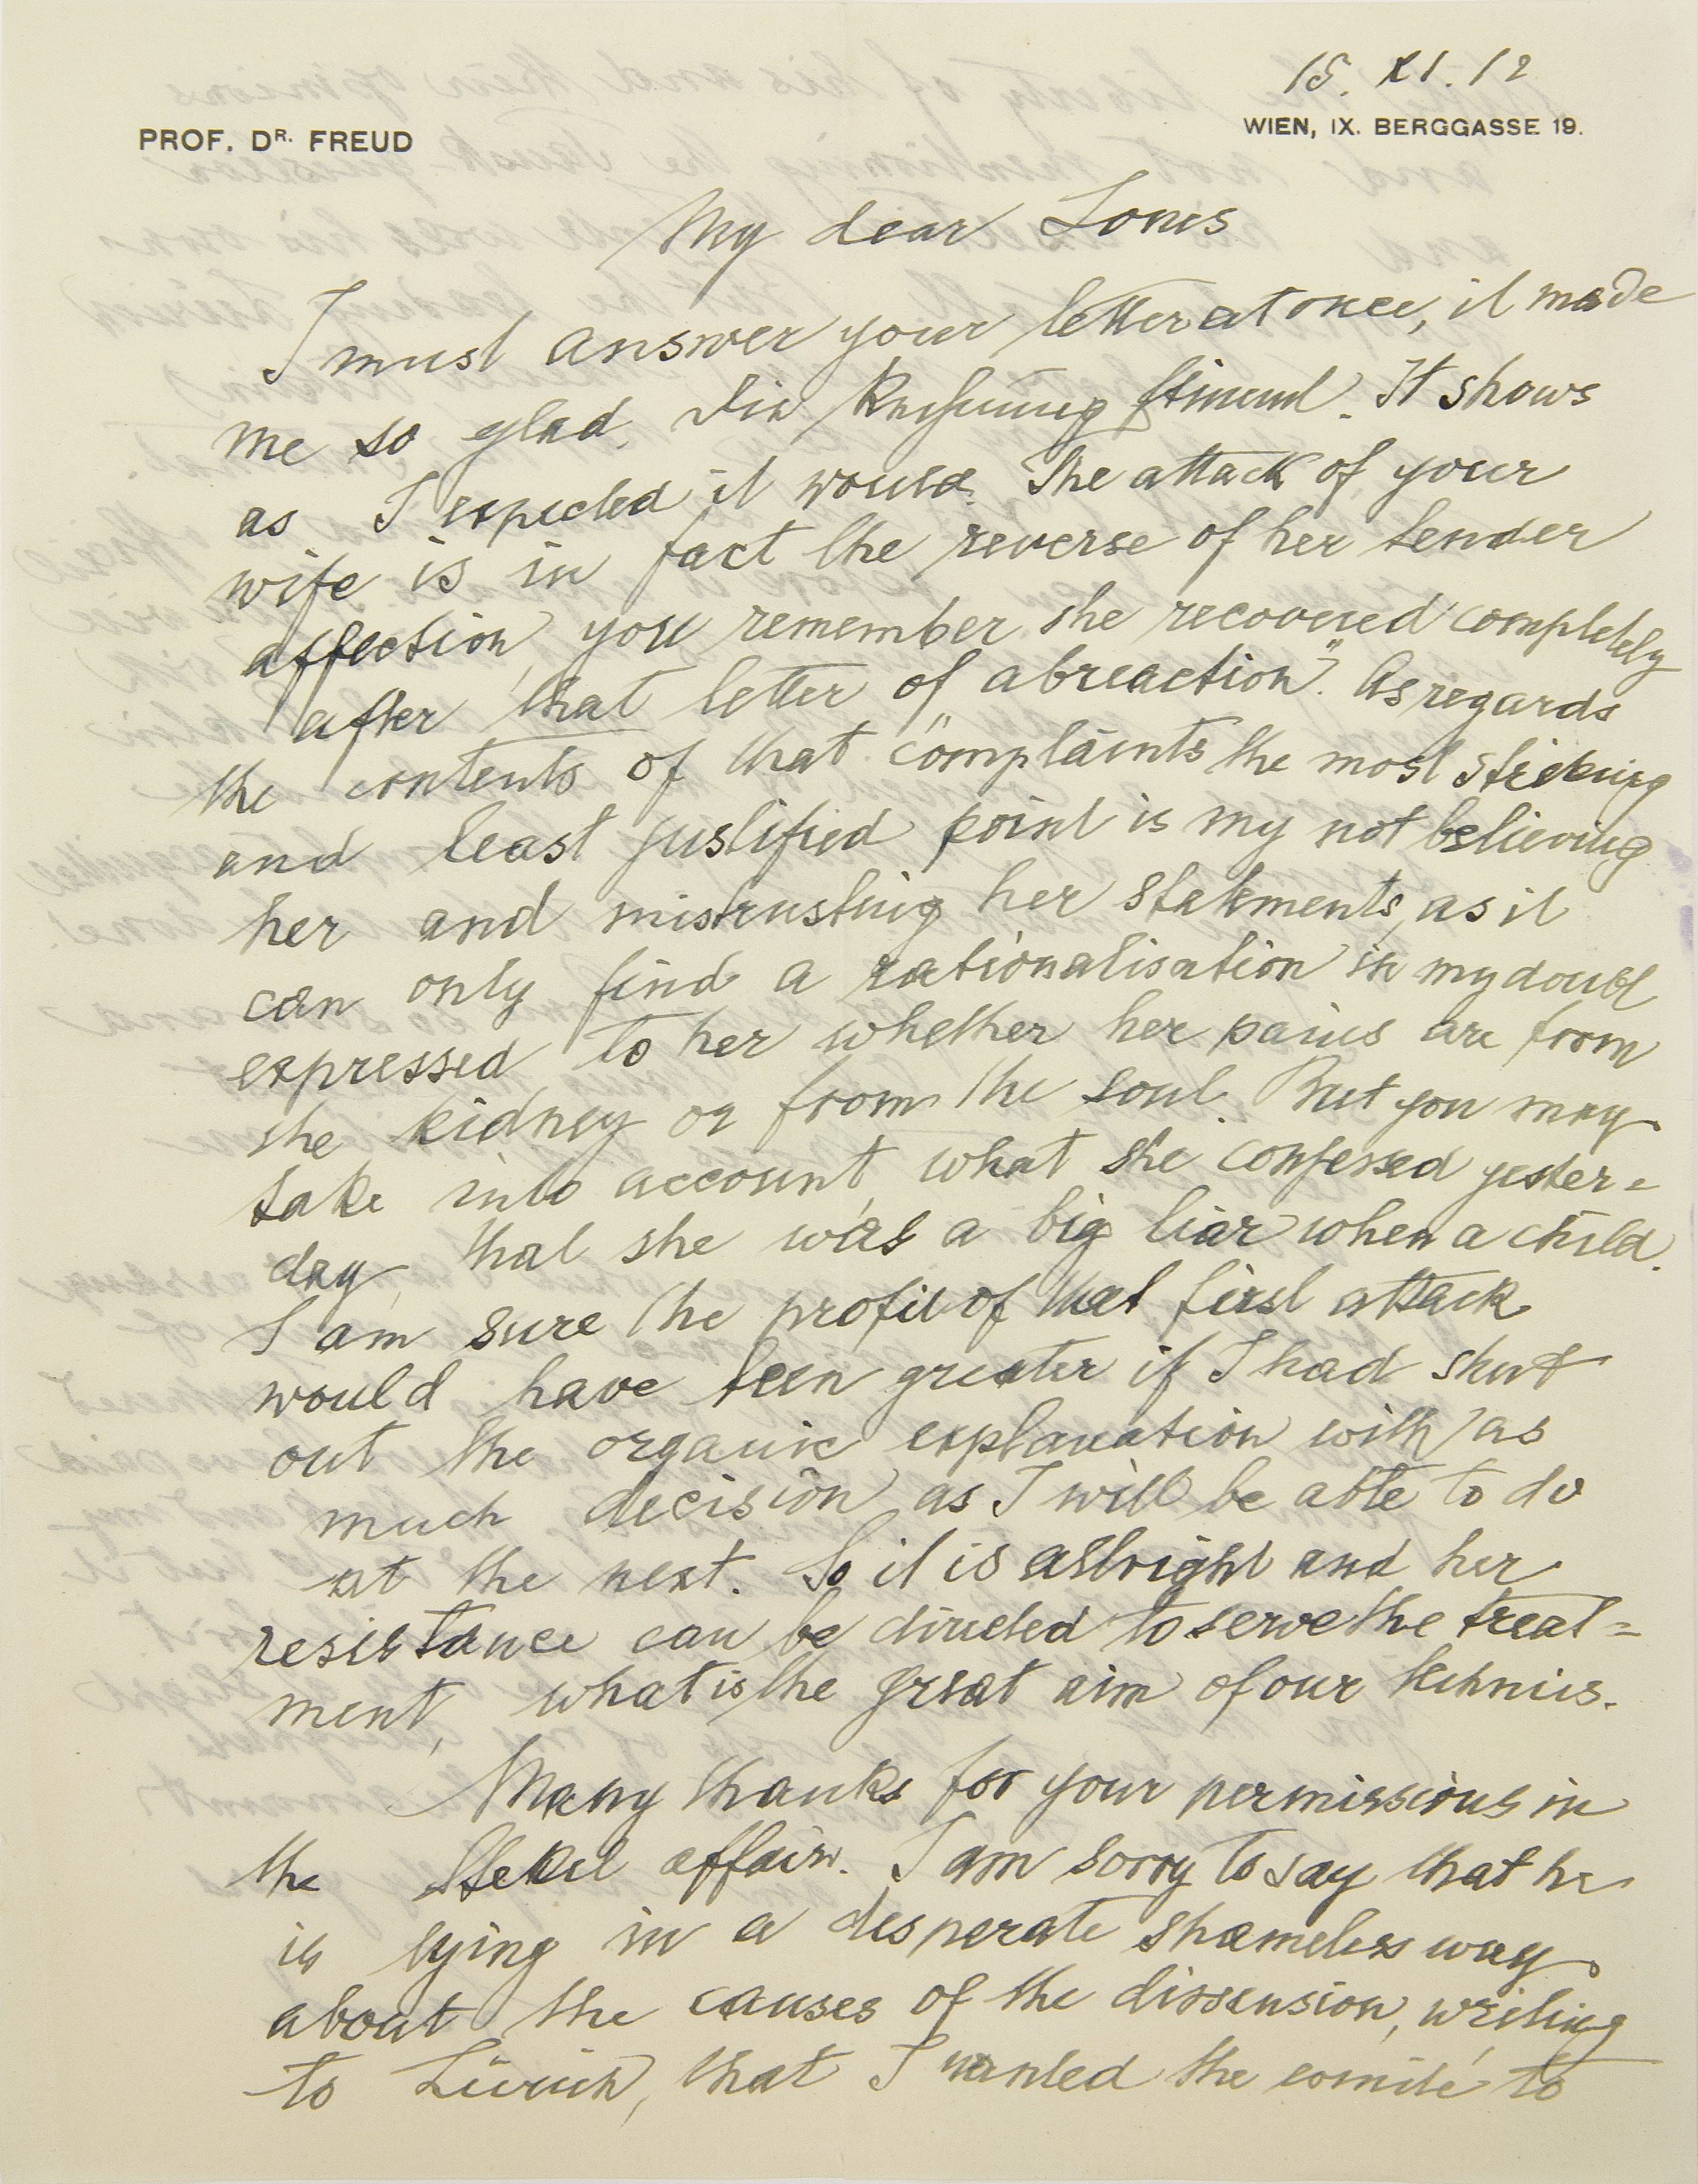 15. XI. 12
PROF. DR. FREUD
WIEN, IX. BERGGASSE 19.
My dear Jones
I must answer your letter at once, it made
me so glad. Die Rechnung stimmt. It shows
as I expected it would. The attack of your
wife is in fact the reverse of her tender
affection, you remember she recovered completely
after that letter of "abreaction". As regards
the contents of that complaints the most striking
and least justified point is my not believing
her and mistrusting her statements, as it
can only find a rationalisation in my doubt
expressed to her whether her pains are from
the kidney or from the soul. But you may
take into account, what she confessed yester=
day, that she was a big liar when a child.
I am sure the profit of that first attack
would have been greater if I had shut
out the organic explanation with as
much decision as I will be able to do
at the next. So it is allright and her
resistance can be directed to serve the treat=
ment, what is the great aim of our technics.
Many thanks for your permissions in
the Stekel affair. I am sorry to say that he
is lying in a desperate shameless way
about the causes of the dissension, writing
to Zürich, that I wanted the comité to